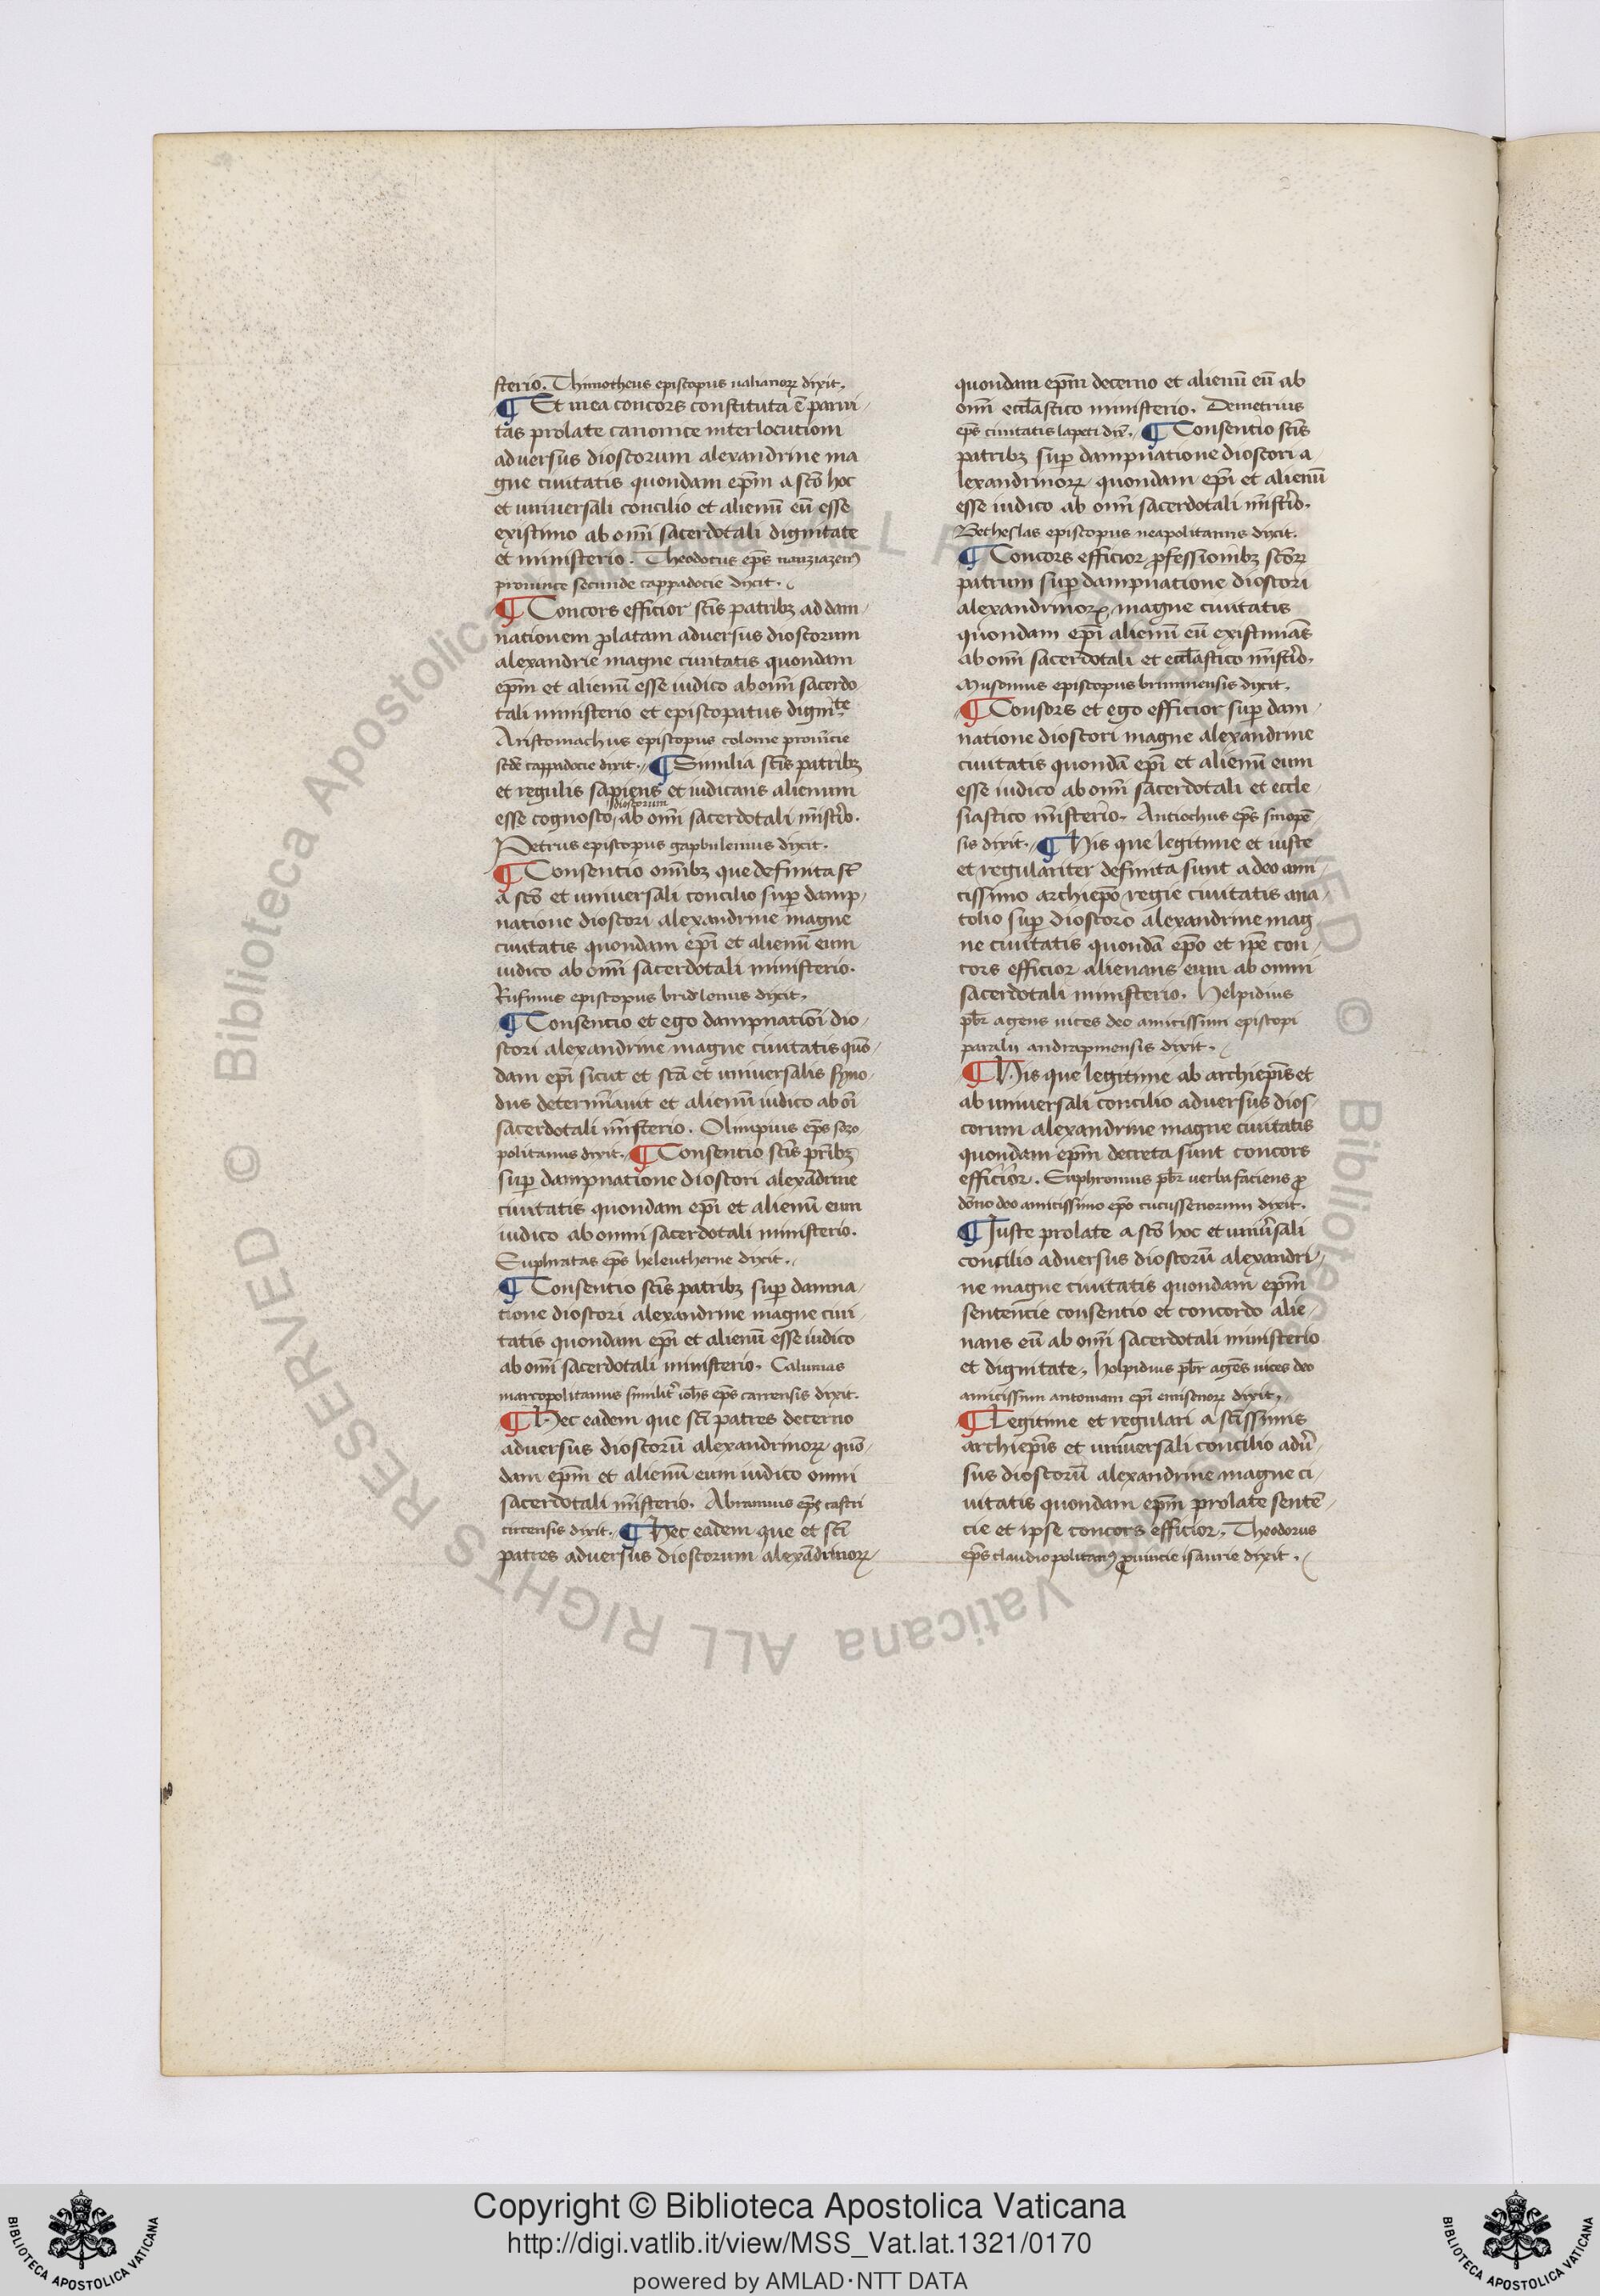 sterio. Thimotheus episcopus ualianoꝝ dixit.
¶ Et mea concors constituta ē parui
tas prolate canonice interlocutioni
aduersus dioscorum alexandrine ma
gne ciuitatis quondam ep̄m a sc̄o hoc
et uniuersali concilio et alienū eū esse
existimo ab om̄i sacerdotali dignitate
et ministerio. Theodotus ep̄s nanziazenꝰ
prouince secunde cappadocie dixit.
¶ Concors efficior sc̄is patribꝫ ad dam
nationem ꝓlatam aduersus dioscorum
alexandrie magne ciuitatis quondam
ep̄m et alienū esse iudico ab om̄i sacerdo
tali ministerio et episcopatus dignite
Aristomachus episcopus colonie prouīcie
scd̄e cappadocie dixit. ¶ Similia sc̄is patribꝫ
et regulis sapiens et iudicans alienum
esse cognosco dioscorum ab om̄i sacerdotali mīst̄io.
Petrus episcopus gapbulenus dixit.
¶ Consentio om̄ibꝫ que definita st̄
a sc̄o et uniuersali concilio suꝑ damp
natione dioscori alexandrine magne
ciuitatis quondam ep̄i et alienū eum
iudico ab om̄i sacerdotali ministerio.
Rufinus episcopus bridlenus dixit.
¶ Consentio et ego dampnatiōi dio
scori alexandrine magne ciuitatis quō
dam ep̄i sicut et sc̄a et uniuersalis syno
dus determīauit et alienū iudico ab oī
sacerdotali mīsterio. Olimpius ep̄s sozo
politanus dixit. ¶ Consentio sc̄is pr̄ibꝫ
suꝑ dampnatione dioscori alexādrine
ciuitatis quondam ep̄i et alienū eum
iudico ab omni sacerdotali ministerio.
Euphratas ep̄s heleutherne dixit.
¶ Consentio sc̄is patribꝫ suꝑ damna
tione dioscori alexandrine magne ciui
tatis quondam ep̄i et alienū esse iudico
ab om̄i sacerdotali ministerio. Calumas
marcopolitanus similit̄ ioh̄s ep̄s carrensis dixit.
¶ Hec eadem que sc̄i patres decerno
aduersus dioscorū alexandrinoꝝ quō
dam ep̄m et alienū eum iudico omni
sacerdotali mīsterio. Abramius ep̄s castri
circensis dixit. ¶ Hec eadem que et sc̄i
patres aduersus dioscorum alexādrinoꝝ
quondam ep̄m decerno et alienū eū ab
om̄i eccl̄astico ministerio. Demetrius
ep̄s ciuitatis lapeti dx̄. ¶ Consentio sc̄is
patribꝫ suꝑ dampnatione dioscori a
lexandrinoꝝ quondam ep̄i et alienū
esse iudico ab om̄i sacerdotali mīst̄io.
Betheslas episcopus neapolitanus dixit.
¶ Concors efficior ꝓfessionibꝫ sc̄oꝝ
patrum suꝑ dampnatione dioscori
alexandrinoꝝ magne ciuitatis
quondam ep̄i alienū eū existimās
ab om̄i sacerdotali et eccl̄astico mīst̄io.
Musonius episcopus brimnensis dixit.
¶ Consors et ego efficior suꝑ dam
natione dioscori magne alexandrine
ciuitatis quondā ep̄i et alienū eum
esse iudico ab om̄i sacerdotali et eccle
siastico mīsterio. Antiochus ep̄s sinopē
sis dixit. ¶ His que legitime et iuste
et regulariter definita sunt a deo ami
cissimo archiep̄o regie ciuitatis ana
tolio suꝑ dioscoro alexandrine mag
ne ciuitatis quondā ep̄o et ip̄e con
cors efficior alienans eum ab omni
sacerdotali ministerio. Helpidius
pb̄r agens uices deo amicissimi episcopi
paralii andrapinensis dixit.
¶ His que legitime ab archiep̄is et
ab uniuersali concilio aduersus dios
corum alexandrine magne ciuitatis
quondam ep̄m decreta sunt concors
efficior. Euphronius pb̄r uerba faciens ꝓ
dōno deo amicissimo ep̄o cucussenorum dixit.
¶ Iuste prolate a sc̄o hoc et uniūsali
concilio aduersus dioscorū alexandri
ne magne ciuitatis quondam ep̄m
sentencie consentio et concordo alie
nans eū ab om̄i sacerdotali ministerio
et dignitate. Holpidius pb̄r agēs uices deo
amicissimi antoniani ep̄i emisenoꝝ dixit.
¶ Legitime et regulari a sc̄issimis
archiep̄is et uniuersali concilio adū
sus dioscorū alexandrine magne ci
uitatis quondam ep̄m prolate sentē
cie et ipse concors efficior. Theodorus
ep̄s claudiopolitanꝰ ꝓuincie isaurie dixit.
© Biblioteca Apostolica Vaticana ALL RIGHTS RESERVED
Copyright © Biblioteca Apostolica Vaticana
http://digi.vatlib.it/view/MSS_Vat.lat.1321/0170
powered by AMLAD·NTT DATA
BIBLIOTECA APOSTOLICA VATICANA
BIBLIOTECA APOSTOLICA VATICANA